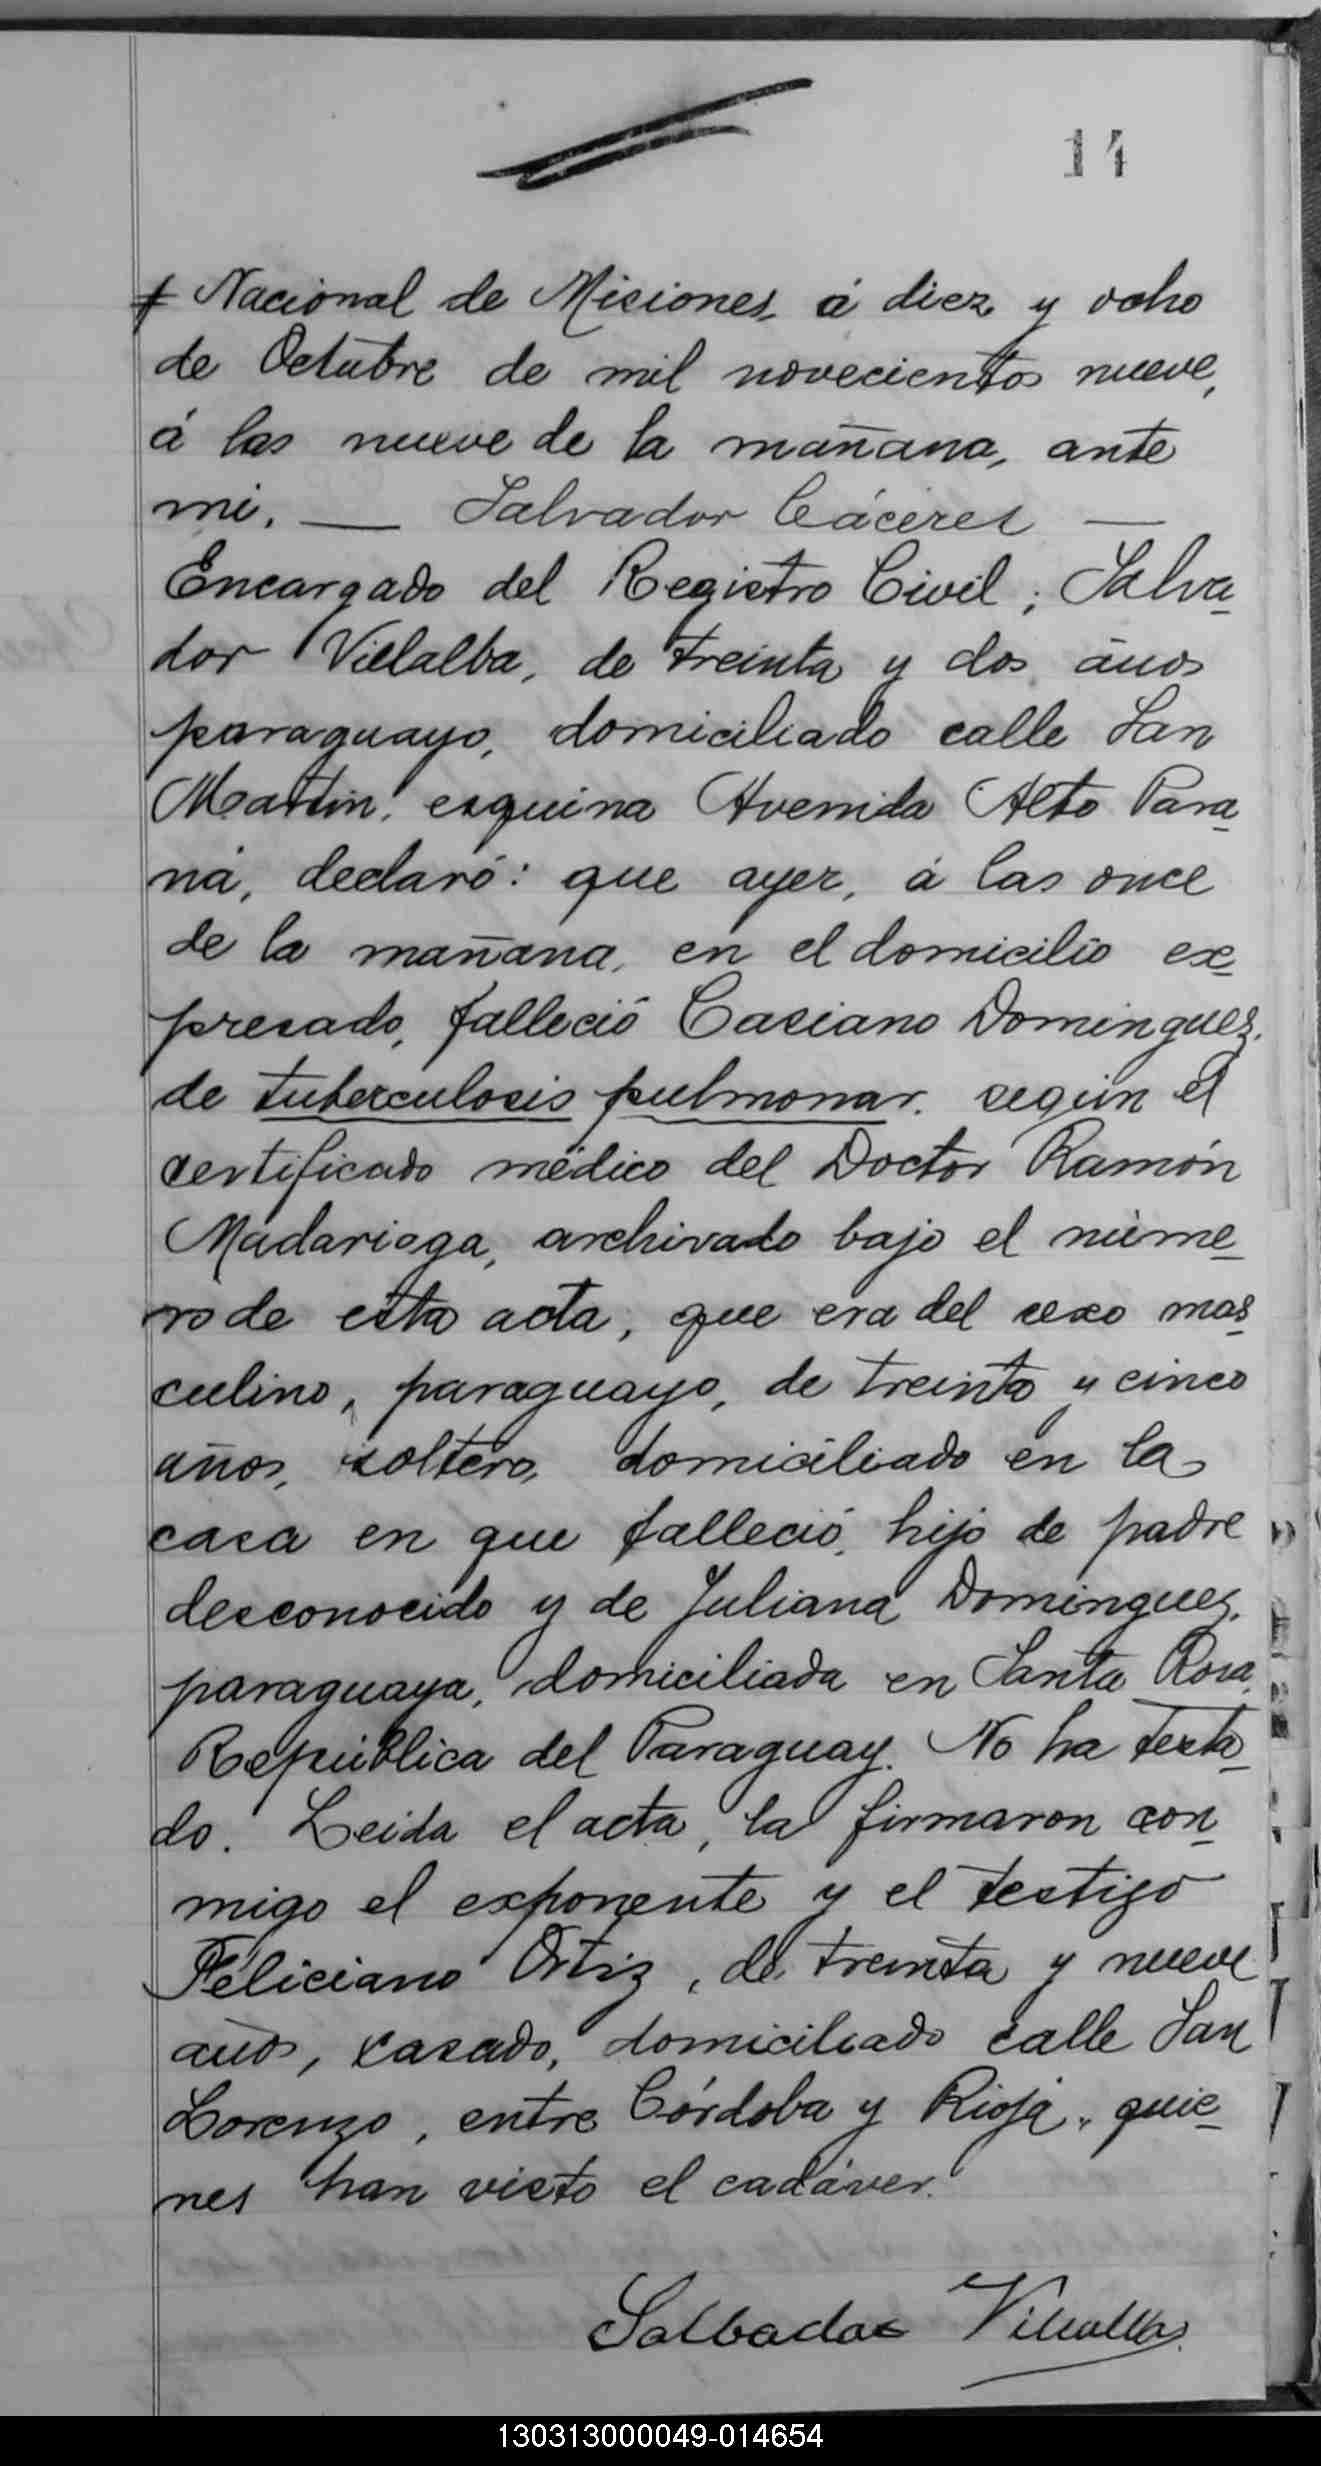 14
Nacional de Misiones, á diez y ocho
de Octubre de mil novecientos nueve,
á las nueve de la mañana, ante
mi. — Salvador Cáceres —
Encargado del Registro Civil; Salva-
dor Villalba, de treinta y dos años
paraguayo, domiciliado calle San
Martin, esquina Avenida Alto Para-
ná, declaró: que ayer, á las once
de la mañana, en el domicilio ex-
presado, falleció Casiano Domingues,
de tuberculosis pulmonar. según el
certificado médico del Doctor Ramón
Madariaga, archivado bajo el núme-
ro de esta acta, que era del sexo mas-
culino, paraguayo, de treinta y cinco
años, soltero, domiciliado en la
casa en que falleció, hijo de padre
desconocido y de Juliana Domingues,
paraguaya, domiciliada en Santa Rosa,
República del Paraguay. No ha testa-
do. Leida el acta, la firmaron con-
migo el exponente y el testigo
Feliciano Ortiz, de treinta y nueve
años, casado, domiciliado calle San
Lorenzo, entre Córdoba y Rioja, quie-
nes han visto el cadáver.
Salbador Villalba
130313000049-014654